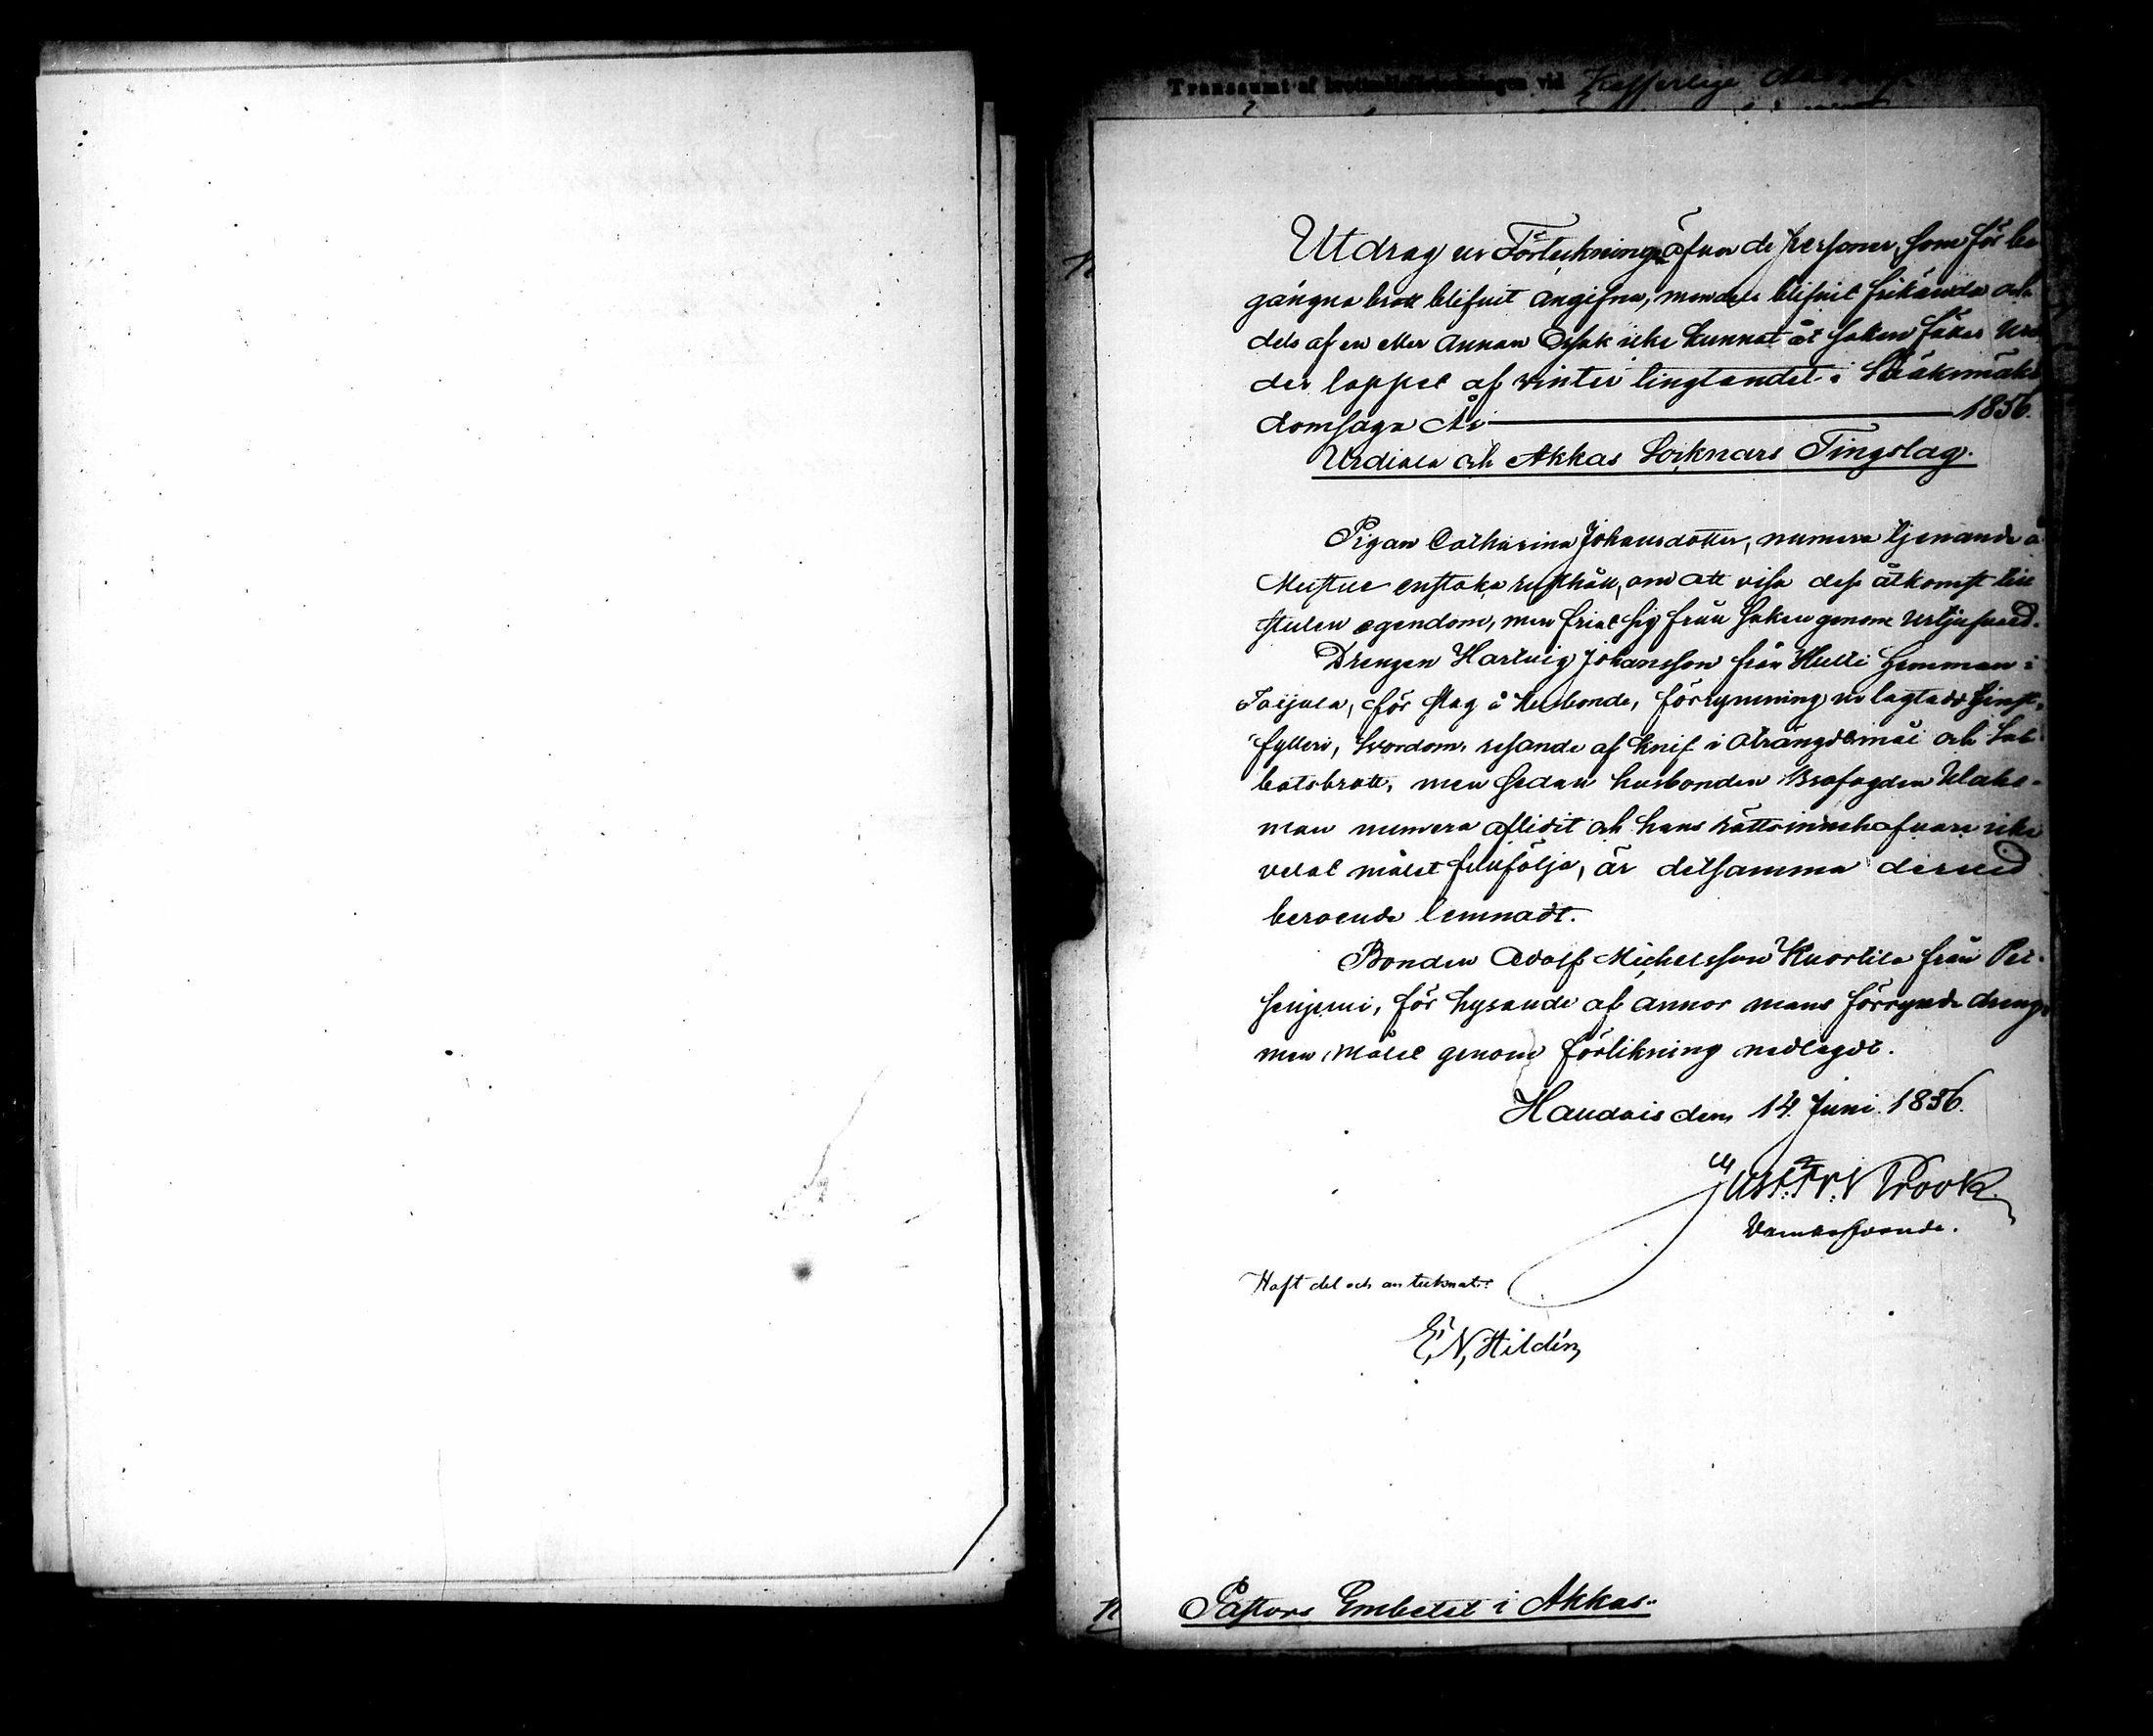 Transsumt af brottmålsförteckningen vid Kejserlige
Utdrag ur Förteckning öfver de personer, som för be-
gångna brott blifvit angifna, men dels blifvit frikända och
dels af en eller annan Orsak icke kunnat åt saken fällas un-
der loppet af vinter tingtandet i Sääksmäki
domsaga År 1856.
Urdiala och Akkas Socknars Tingslag.
Pigan Catharina Johansdotter, numera tjenande å
enstaka rusthåll, om att visa dess åtkomst till
stulen egendom, men friat sig från saken genom Urtjufvaed.
Drengen Hartvig Johansson från Hemman i
Toijala, för slag å Husbonde, förrymning ur lagtadt tjenst,
fylleri, svordom, resande af knif i trängdsmål och Sab-
batsbrott, men sedan husbonden Brofogden Klake-
man numera aflidit och hans rättsinnehafvare icke
velat målet fullfölja, är detsamma dervid
beroende lemnadt.
Bonden Adolf Michelsson Kuortila från
för hysande af annor mans förrymde dreng,
men målet genom förlikning nedlagdt.
Haudois den 14 Juni 1856.
Gust. Fr.
Domhafvande.
Haft del och antecknat:
E. N. Hildén
Pastors Embetet i Akkas.